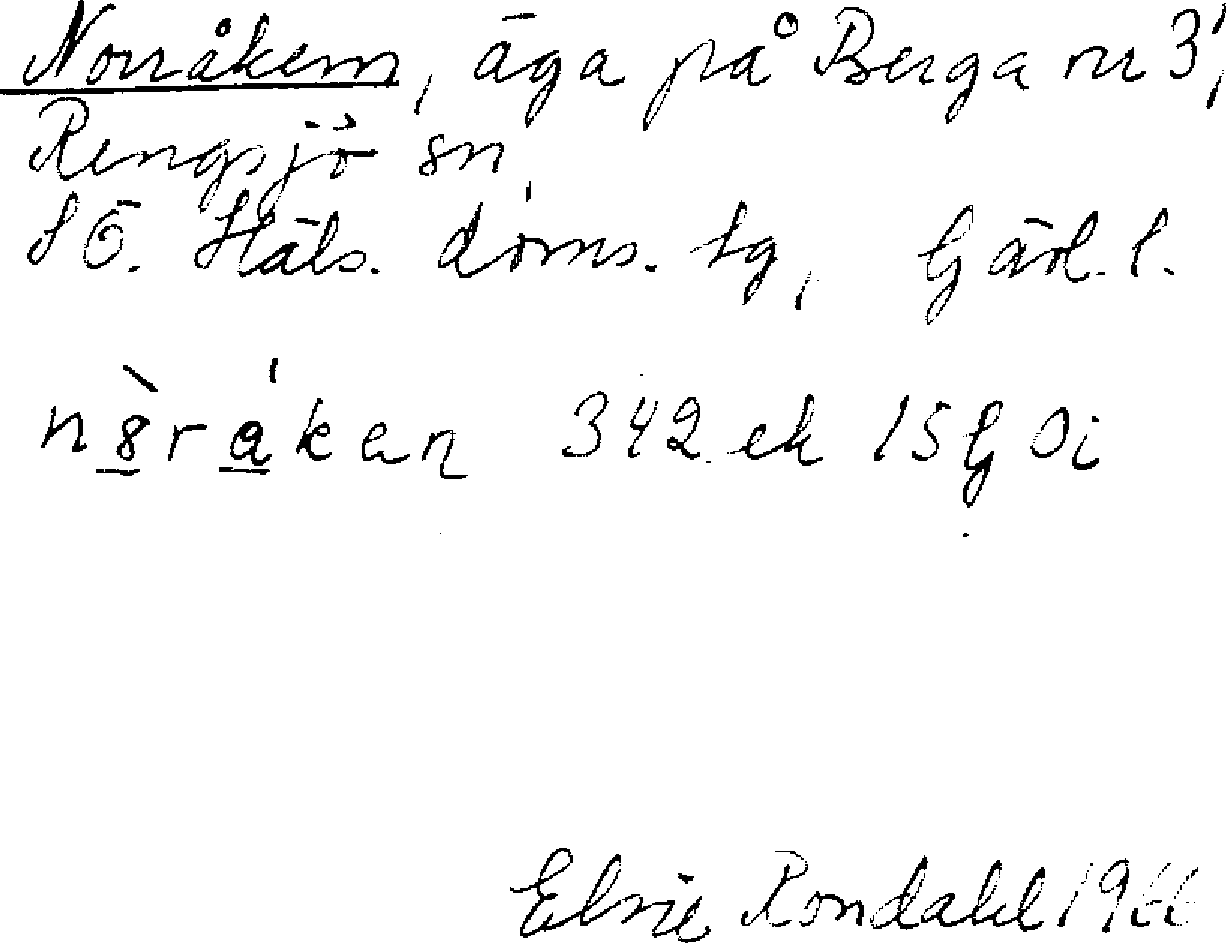 Norråkern, äga på Berga nr 3¹,
Rengsjö sn,
SÖ. Häls. doms. tg, Gävl. l.
342 ek 15G 0i
Elsie Rondahl 1966